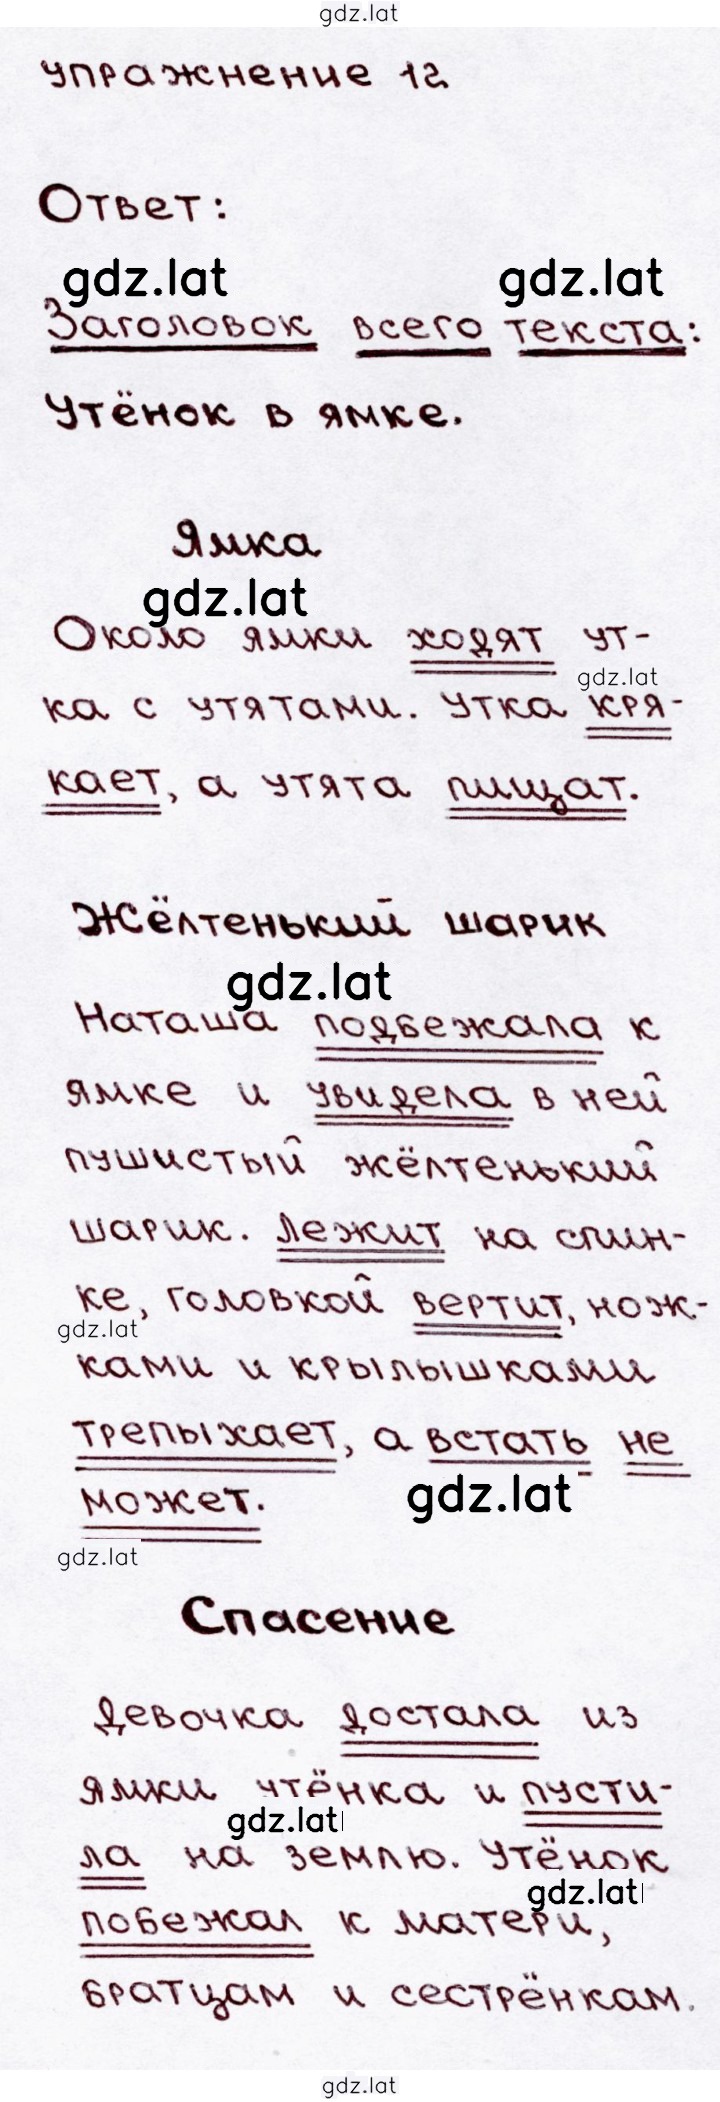 gdz.lat
упражнение 12
Ответ:
gdz.lat gdz.lat
Заголовок всего текста:
Утёнок в ямке.
Ямка
gdz.lat
Около ямки ходят ут-
gdz.lat
ка с утятами. Утка кря-
кает, а утята пищат.
Жёлтенький шарик
gdz.lat
Наташа подбежала к
ямке и увидела в ней
пушистый жёлтенький
шарик. Лежит на спин-
ке, головкой вертит, нож-
gdz.lat
ками и крылышками
трепыхает, а встать не
может.
gdz.lat
gdz.lat
Спасение
Девочка достала из
ямки утёнка и пусти-
gdz.lat
ла на землю. Утёнок
gdz.lat
побежал к матери,
братцам и сестрёнкам.
gdz.lat